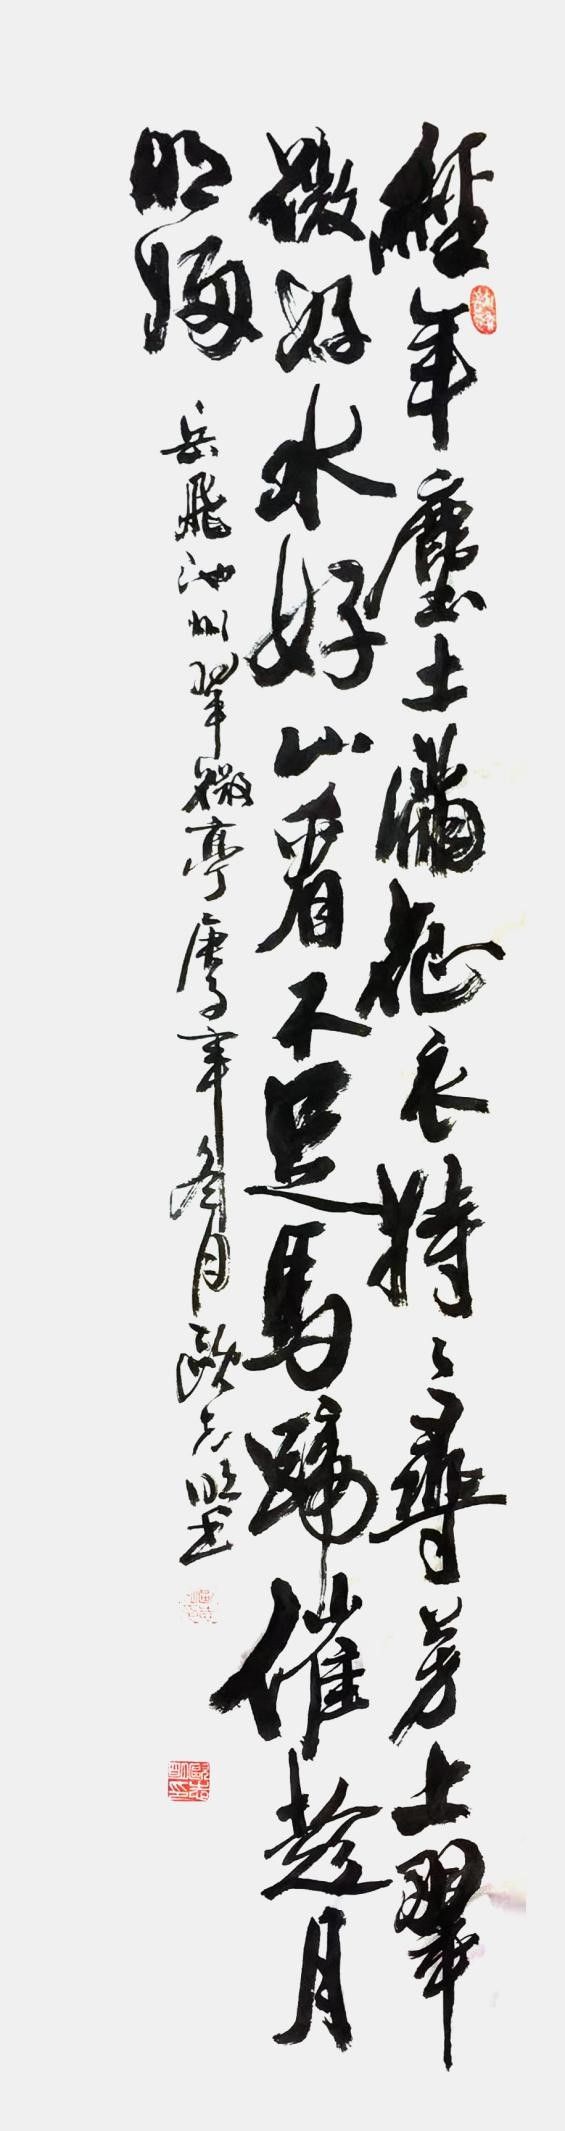 經年塵土滿征衣特々尋芳上翠
微好水好山看不足馬蹄催趁月
明歸
岳飛池州翠微亭庚子年冬月歐志明書
歐志明印